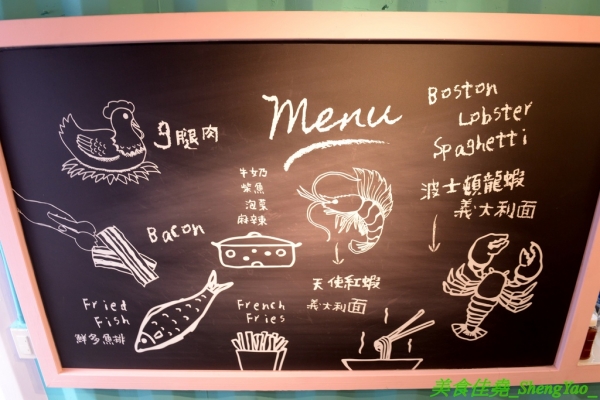 Menu
Boston
Lobster
Spaghetti
9腿肉
牛奶
紫魚
泡菜
麻辣
波士頓龍蝦
義大利面
Bacon
天使紅蝦
義大利面
Fried
Fish
French
Fries
美食佳堯_ShengYao_